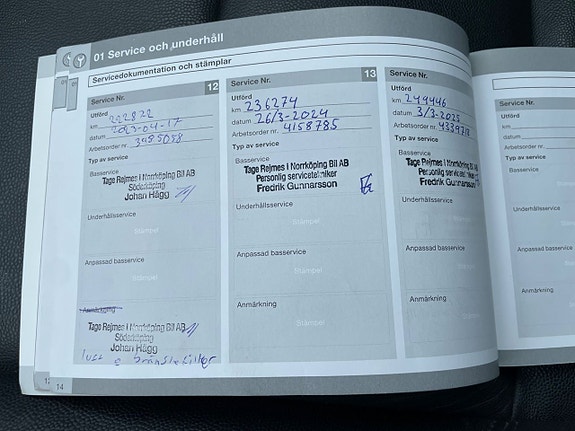 01 Service och underhåll
Servicedokumentation och stämplar
Service Nr. 12
Utförd
km 222872
datum 2023-04-17
Arbetsorder nr. 3985058
Typ av service
Basservice
Tage Rejmes i Norrköping Bil AB
Söderköping
Johan Hägg
Underhållsservice
Stämpel
Anpassad basservice
Stämpel
Anmärkning
Tage Rejmes i Norrköping Bil AB
Söderköping
Johan Hägg
bränslefilter
Service Nr. 13
Utförd
km 236274
datum 26/3-2024
Arbetsorder nr. 4158785
Typ av service
Basservice
Tage Rejmes i Norrköping Bil AB
Personlig servicetekniker
Fredrik Gunnarsson
Underhållsservice
Stämpel
Anpassad basservice
Stämpel
Anmärkning
Stämpel
Service Nr.
Utförd
km 249446
datum 3/3-2025
Arbetsorder nr.
Typ av service
Basservice
Tage Rejmes i Norrköping Bil AB
Personlig servicetekniker
Fredrik Gunnarsson
Underhållsservice
Stämpel
Anpassad basservice
Stämpel
Anmärkning
Stämpel
Service Nr.
Utförd
km
datum
Arbetsorder nr.
Typ av service
Basservice
14